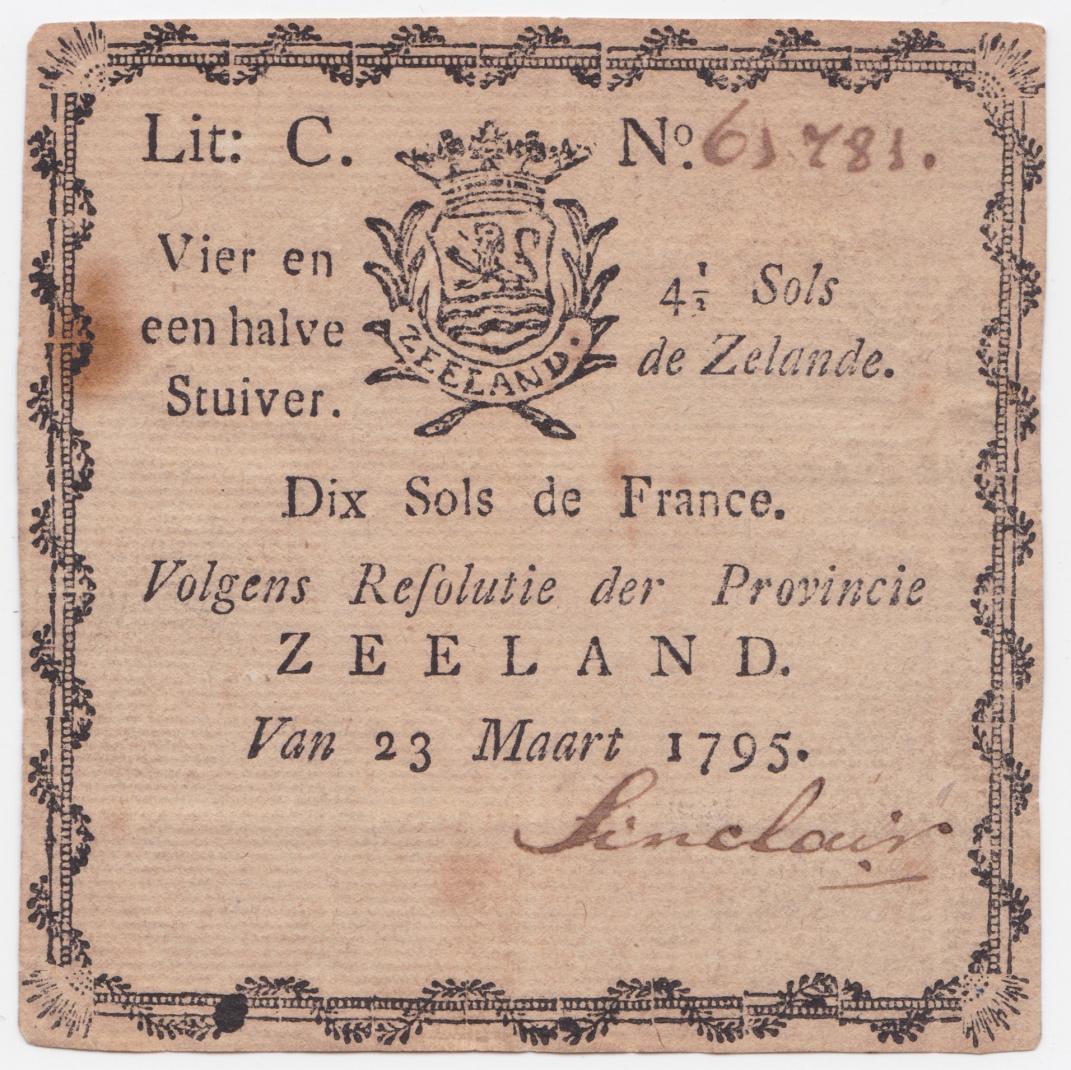 Lit: C.
Nº. 61781.
Vier en
een halve
Stuiver.
ZEELAND.
4½ Sols
de Zelande.
Dix Sols de France.
Volgens Reſolutie der Provincie
ZEELAND.
Van 23 Maart 1795.
Sinclair